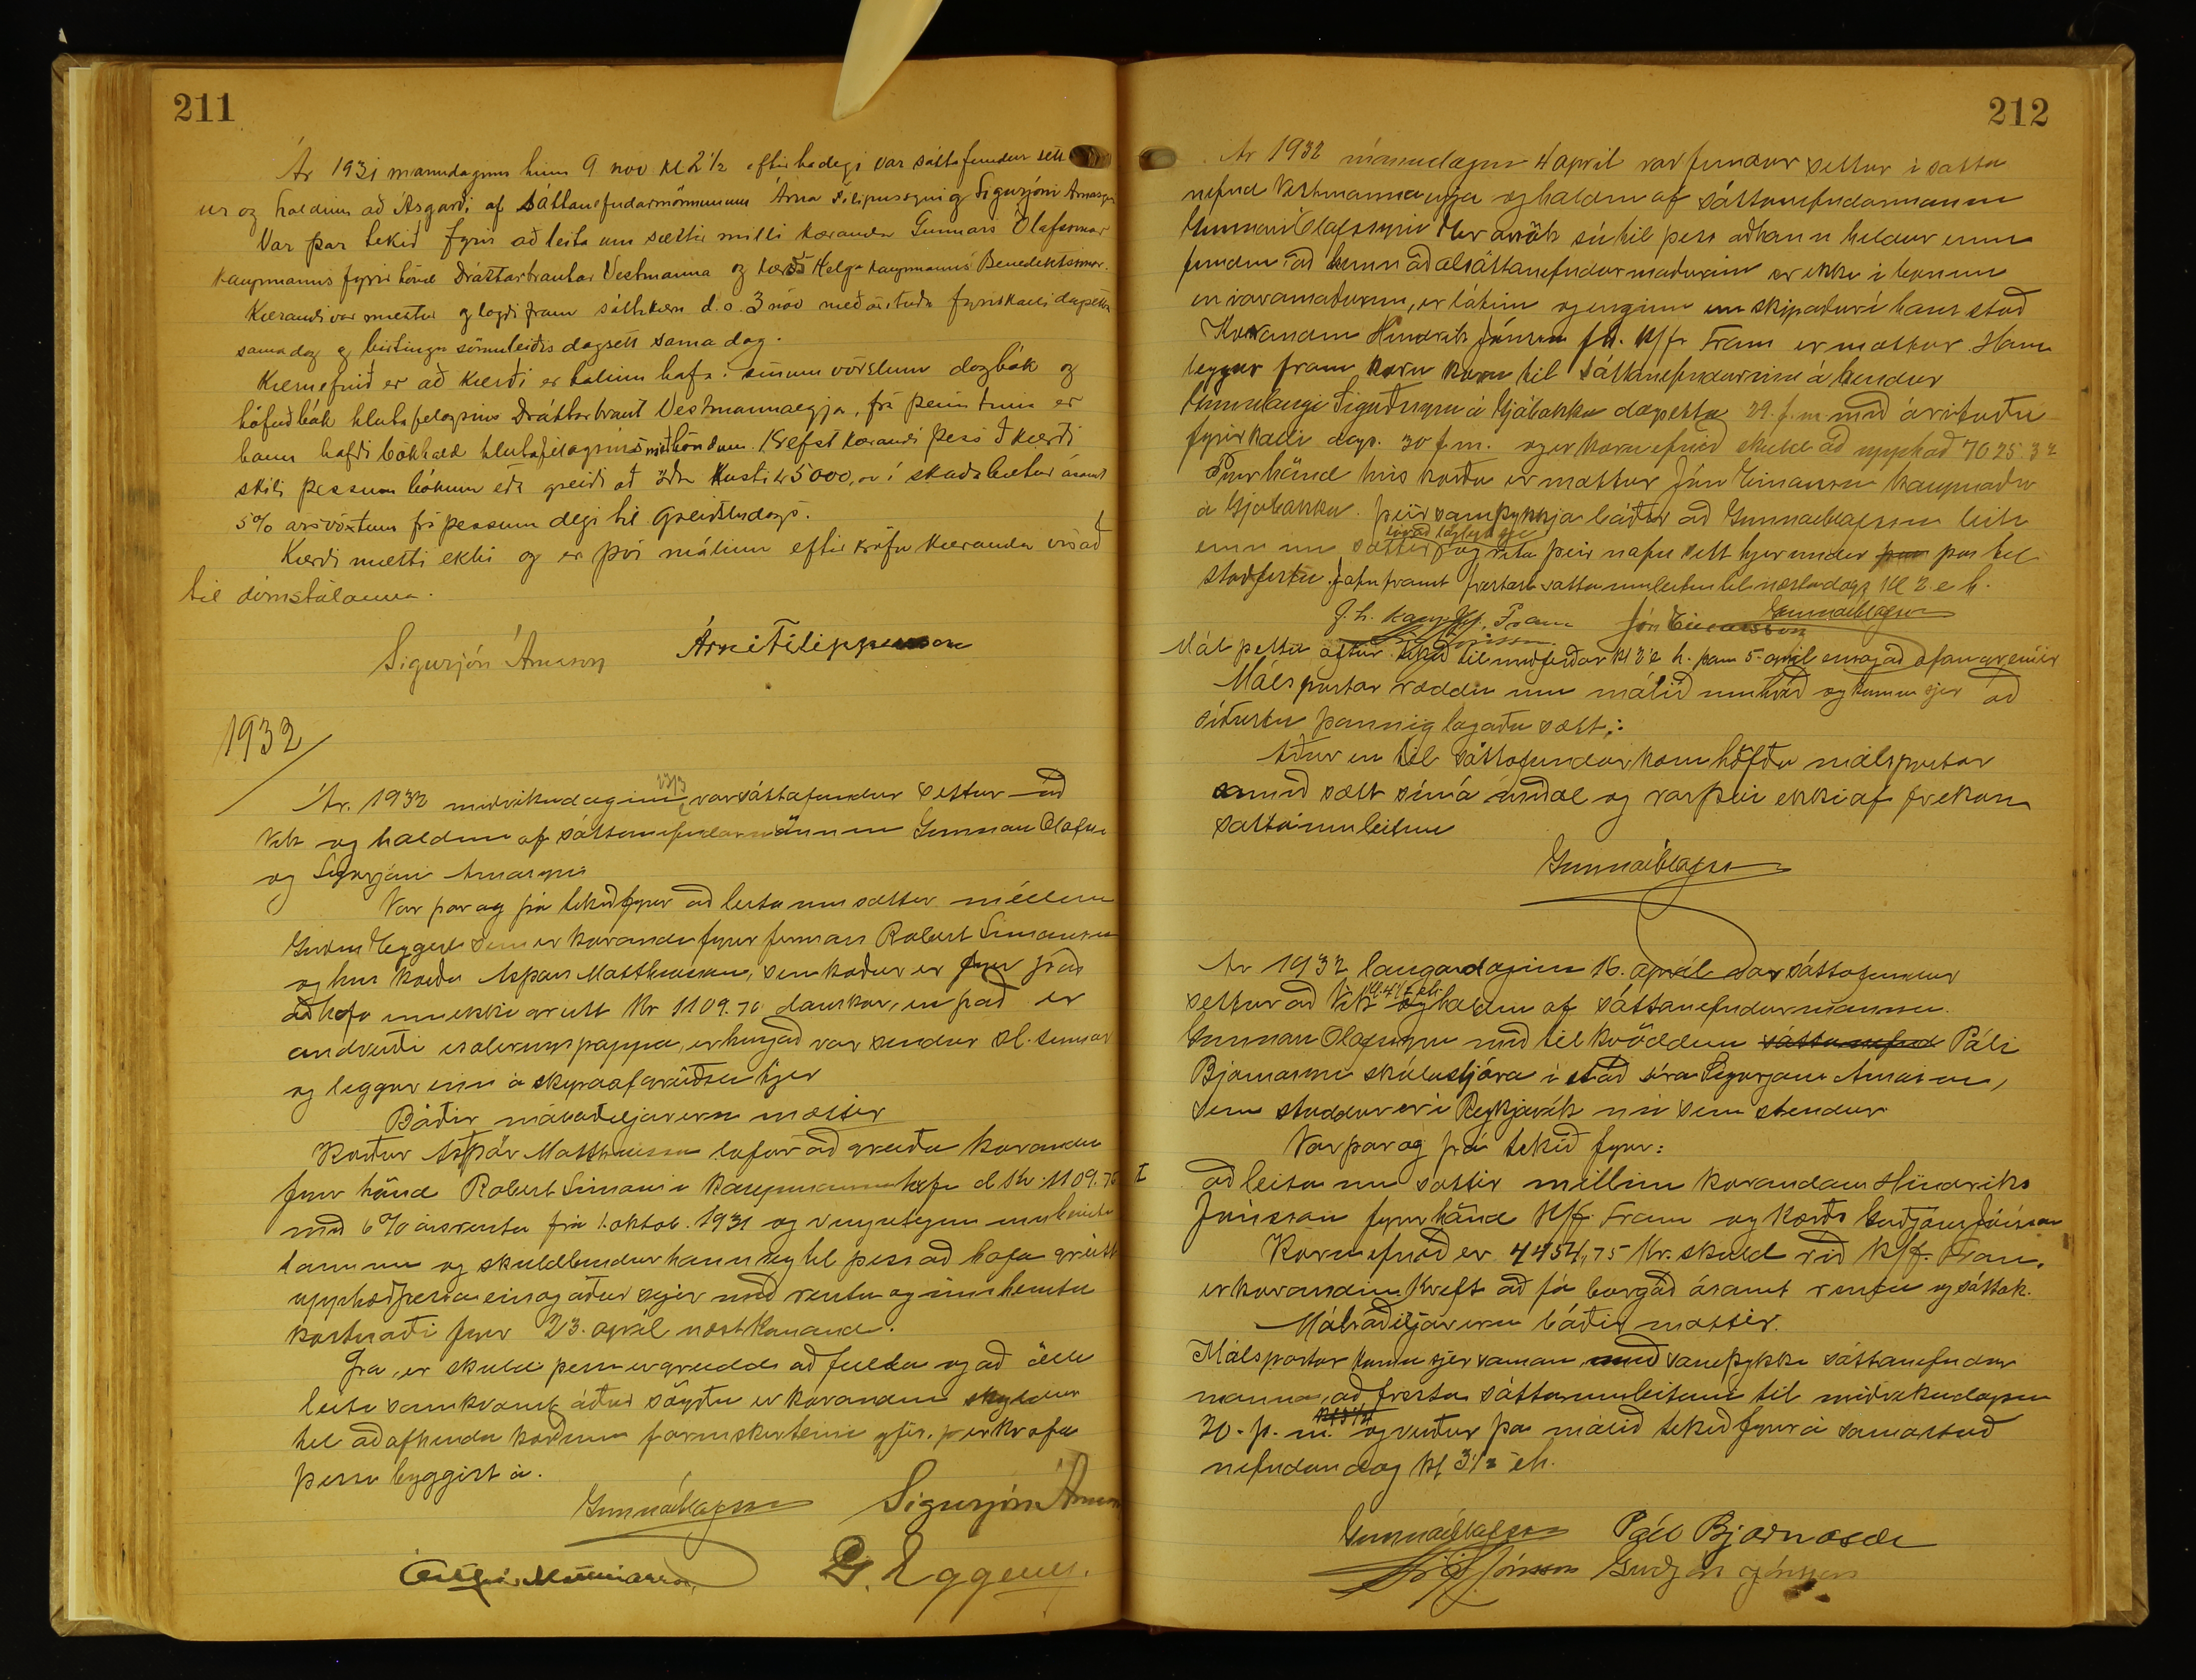 211
Ár 1931 mánudaginn hinn 9 nóv kl 2 1/2 eftir hadegi var sáttafundur sett
ur og haldinn að Ásgarði af sáttanefndarmönnunum Árna Filipussyni og Sigurjóni Árnasyni
Var þar tekið fyrir að leita um sættir milli kæranda Gunnars Ólafssonar
kaupmanns fyrir hönd Dráttarbrautar Vestmanna og kærða Helga kaupmanns Benediktssonar.
Kærandi var mættur og lagði fram sáttakæru d.s. 3 nóv með áritaða fyrirkalli dagsettu
sama dag og birtingu sömuleiðis dagsett sama dag.
Kæruefnið er að kærði er talinn hafa í sínum vörslum dagbók og
höfuðbók hlutafelagsins Dráttarbraut Vestmannaeyja, frá þeim tíma er
hann hafði bókhald hlutafélagsins með höndum. Krefst kærandi þess að kærði
skili þessum bókum eða greiði að öðrum kosti kr 5000,00 í skaðabætur ásamt
5% ársvöxtum frá þessum degi til greiðsludags.
Kærði mætti ekki og er því málinu eftir kröfu kæranda vísað
til dómstólanna.
Sigurjón Árnason Árni Filippusson
1932
Ár. 1932 miðvikudaginn 23/3 var sáttafundur settur að
Vík og haldinn af sáttanefndarmönnum Gunnari Olafss
og Sigurjóni Arnasyni
Var þar og þá tekið fyrir að leita um sættir millum
Guðm Eggerz sem er kærandi fyrir firmað Robert Simonsen
og hins kærða Ástþórs Matthiassonar, sem kærður er fyrir það
að hafa enn ekki greitt kr 1109.70 danskar, en það er
andvirði isoleringspappa, er hingað var sendur sl. sumar
og leggur inn á skipaafgreiðslu hjer
Báðir málsaðiljar eru mættir
Kærður Ástþór Matthiasson lofar að greiða kæranda
fyrir hönd Robert Simonsen Kaupmannahöfn d Kr. 1109.70
með 6% ársrentu frá 1. oktob. 1931 og venjulegum innheimtu
launum og skuldbindur hann sig til þess að hafa greitt
upphæð þessa eins og áður segir með rentu og innheimtu
kostnaði fyrir 23. apríl næstkomandi.
Þá, er skuld þessi er greidd að fullu og að öllu
leiti samkvæmt áður sögðu er kærandinn skyldur
til að afhenda kærðum farmskirteini yfir, er krafa
þessi byggist á.
Gunnar Olafsson Sigurjón Árnason
Ástþór Matthiasson G. Eggerz.
212
Ár 1932 mánudaginn 4 apríl var fundur settur i satta
nefnd Vestmannaeyja og haldinn af sáttanefndarmanni
Gunnari Olafssyni Er orsök sú til þess að hann heldur einn
fundinn að hinn aðalsáttanefndarmaðurinn er ekki í bænum
en varamaðurinn, er látinn og enginn enn skipaður í hans stað
Kærandinn Hindrik Jónsson fh. K/fr Fram er mættur. Hann
leggur fram kæru til Sáttanefndarinnar á hendur
Gunnlaugi Sigurðssyni á Gjábakka dagsetta 29. f.m. með árituðu
fyrirkalli dags. 30 f.m. og er kæruefnið skuld að upphæð 7025.32
Fyrir hönd hins kærða er mættur Jón Einarsson kaupmaður
á Gjábakka. þeir samþykkja báðir að Gunnar Olafsson leiti
einn um sættir svo að löglegt sje og rita þeir nafn sitt hjer undir þar til
staðfestu. Jafnframt frestast sattaumleitun til næsta dags kl 2 e h.
f. h. Kaupfjf. Fram Jón Einarsson Gunnar Olafsson
Mál þetta aftur tekið til meðferðar kl 2 e h. þann 5. apríl eins og að ofan greinir
Málspartar ræddu um málið um hríð og komu sjer að
síðustu þannig lagaða sætt:
Áður en til sáttafundar kom höfðu málspartar
samið sætt sín á meðal og varð þar ekki af frekari
sattaumleitun
Gunnar Olafsson
Ár 1932 laugardaginn 16. apríl var sáttafundur
settur að Vik kl. 4 1/2 eh. og haldinn af sáttanefndarmanni
Gunnari Olafssyni með til kvöddum sáttanefnd Páli
Bjarnasyni skólastjóra í stað síra Sigurjóns Árnasonar,
sem staddur er í Reykjavík nú sem stendur.
Var þar og þá tekið fyrir:
I að leita um sættir millum kærandans Hindriks
Jónssonar fyrir hönd K/f. Fram og kærðs Guðjóns Jónssonar
Kæruefnið er 4454,75 kr. skuld við K/f. Fram,
er kærandinn krefst að fá borgað ásamt rentu og sáttak.
Málsaðiljar eru báðir mættir.
Málspartar komu sjer saman, með samþykki sáttanefndar
manna, að fresta sáttaumleitunni til miðvikudagsins
20. þ. m. kl 3 1/2 og verður þá málið tekið fyrir á sama stað
nefndan dag kl 3 1/2 eh.
Gunnar Olafsson Páll Bjarnason
Jónsson Guðjón Jónsson